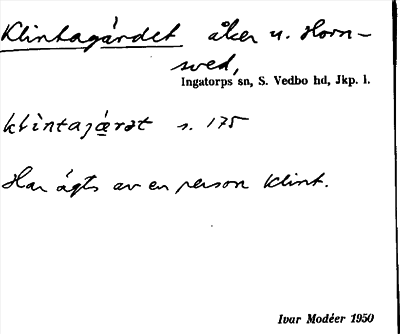 Klintagärdet åker u. Horn-
sved,
Ingatorps sn, S. Vedbo hd, Jkp. l.
klìntajæ̀rət s. 175
Har ägts av en person Klint.
Ivar Modéer 1950